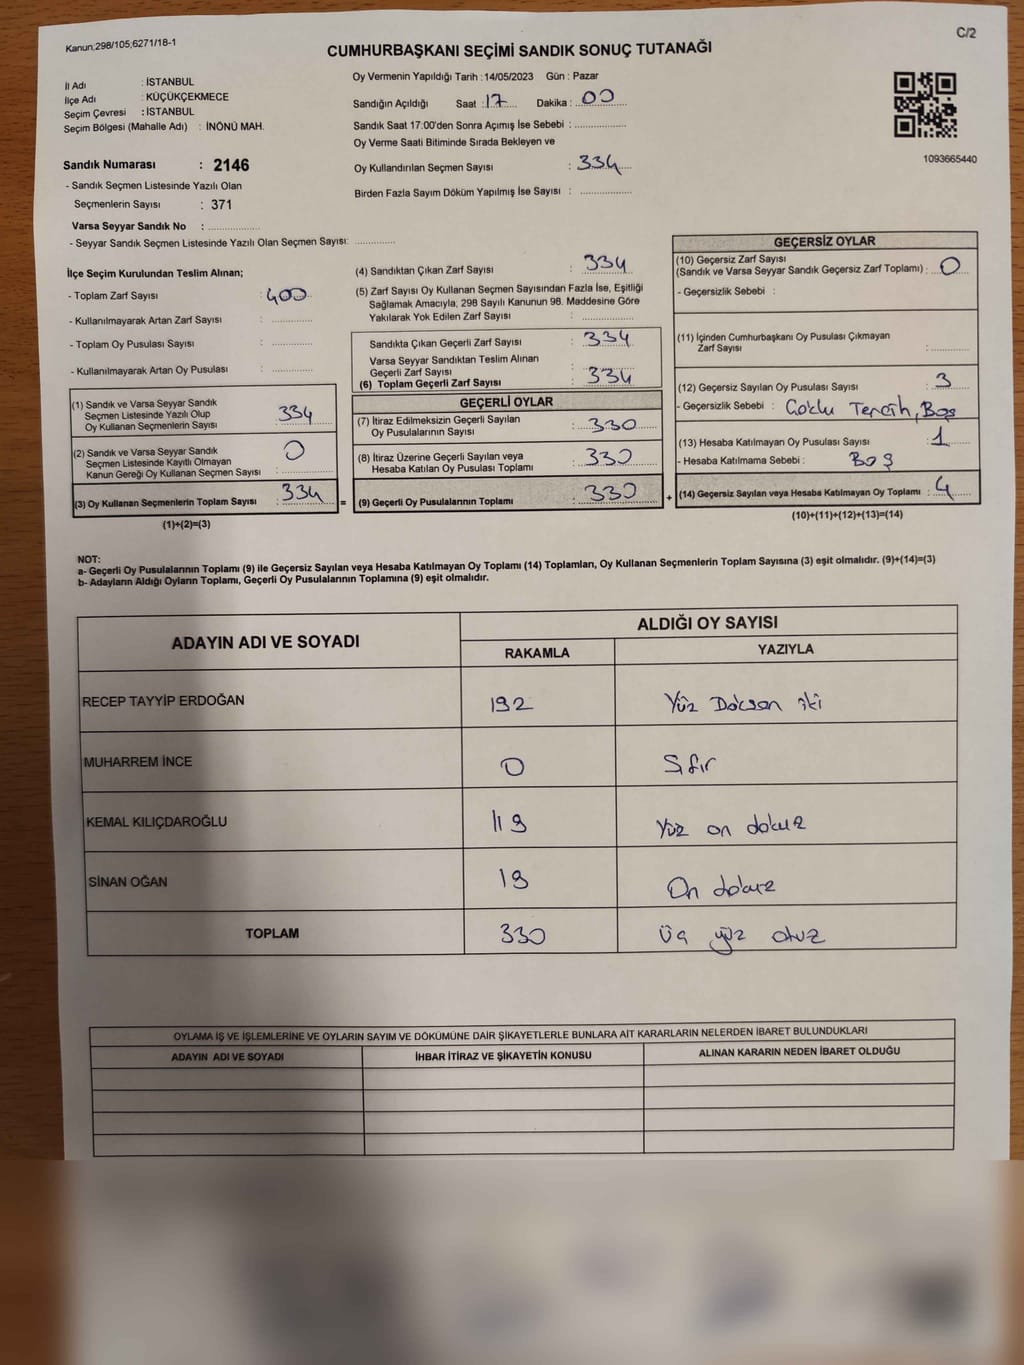 Kanun;298/105;6271/18-1
C/2
CUMHURBAŞKANI SEÇİMİ SANDIK SONUÇ TUTANAĞI
İl Adı : İSTANBUL
İlçe Adı : KÜÇÜKÇEKMECE
Seçim Çevresi : İSTANBUL
Seçim Bölgesi (Mahalle Adı) : İNÖNÜ MAH.
Sandık Numarası : 2146
- Sandık Seçmen Listesinde Yazılı Olan
Seçmenlerin Sayısı : 371
Varsa Seyyar Sandık No : ..................
- Seyyar Sandık Seçmen Listesinde Yazılı Olan Seçmen Sayısı: ..............
Oy Vermenin Yapıldığı Tarih : 14/05/2023 Gün : Pazar
Sandığın Açıldığı Saat : 17 Dakika : 00
Sandık Saat 17:00'den Sonra Açımış İse Sebebi : ..................
Oy Verme Saati Bitiminde Sırada Bekleyen ve
Oy Kullandırılan Seçmen Sayısı : 334
Birden Fazla Sayım Döküm Yapılmış İse Sayısı : ..................
1093665440
İlçe Seçim Kurulundan Teslim Alınan;
- Toplam Zarf Sayısı : 400
- Kullanılmayarak Artan Zarf Sayısı : ..............
- Toplam Oy Pusulası Sayısı : ..............
- Kullanılmayarak Artan Oy Pusulası : ..............
(1) Sandık ve Varsa Seyyar Sandık
Seçmen Listesinde Yazılı Olup
Oy Kullanan Seçmenlerin Sayısı : 334
(2) Sandık ve Varsa Seyyar Sandık
Seçmen Listesinde Kayıtlı Olmayan
Kanun Gereği Oy Kullanan Seçmen Sayısı : 0
(3) Oy Kullanan Seçmenlerin Toplam Sayısı : 334 =
(1)+(2)=(3)
(4) Sandıktan Çıkan Zarf Sayısı : 334
(5) Zarf Sayısı Oy Kullanan Seçmen Sayısından Fazla İse, Eşitliği
Sağlamak Amacıyla, 298 Sayılı Kanunun 98. Maddesine Göre
Yakılarak Yok Edilen Zarf Sayısı : ..................
Sandıkta Çıkan Geçerli Zarf Sayısı : 334
Varsa Seyyar Sandıktan Teslim Alınan
Geçerli Zarf Sayısı :
(6) Toplam Geçerli Zarf Sayısı : 334
GEÇERLİ OYLAR
(7) İtiraz Edilmeksizin Geçerli Sayılan
Oy Pusulalarının Sayısı : 330
(8) İtiraz Üzerine Geçerli Sayılan veya
Hesaba Katılan Oy Pusulası Toplamı : 330
(9) Geçerli Oy Pusulalarının Toplamı : 330 +
GEÇERSİZ OYLAR
(10) Geçersiz Zarf Sayısı
(Sandık ve Varsa Seyyar Sandık Geçersiz Zarf Toplamı) : 0
- Geçersizlik Sebebi :
(11) İçinden Cumhurbaşkanı Oy Pusulası Çıkmayan
Zarf Sayısı : ..............
(12) Geçersiz Sayılan Oy Pusulası Sayısı : 3
- Geçersizlik Sebebi : Çoklu Tercih, Boş
(13) Hesaba Katılmayan Oy Pusulası Sayısı : 1
- Hesaba Katılmama Sebebi : Boş
(14) Geçersiz Sayılan veya Hesaba Katılmayan Oy Toplamı : 4
(10)+(11)+(12)+(13)=(14)
NOT:
a- Geçerli Oy Pusulalarının Toplamı (9) ile Geçersiz Sayılan veya Hesaba Katılmayan Oy Toplamı (14) Toplamları, Oy Kullanan Seçmenlerin Toplam Sayısına (3) eşit olmalıdır. (9)+(14)=(3)
b- Adayların Aldığı Oyların Toplamı, Geçerli Oy Pusulalarının Toplamına (9) eşit olmalıdır.
ADAYIN ADI VE SOYADI
ALDIĞI OY SAYISI
RAKAMLA YAZIYLA
RECEP TAYYİP ERDOĞAN 192 Yüz Doksan iki
MUHARREM İNCE 0 Sıfır
KEMAL KILIÇDAROĞLU 119 Yüz on dokuz
SİNAN OĞAN 19 On dokuz
TOPLAM 330 Üç yüz otuz
OYLAMA İŞ VE İŞLEMLERİNE VE OYLARIN SAYIM VE DÖKÜMÜNE DAİR ŞİKAYETLERLE BUNLARA AİT KARARLARIN NELERDEN İBARET BULUNDUKLARI
ADAYIN ADI VE SOYADI İHBAR İTİRAZ VE ŞİKAYETİN KONUSU ALINAN KARARIN NEDEN İBARET OLDUĞU